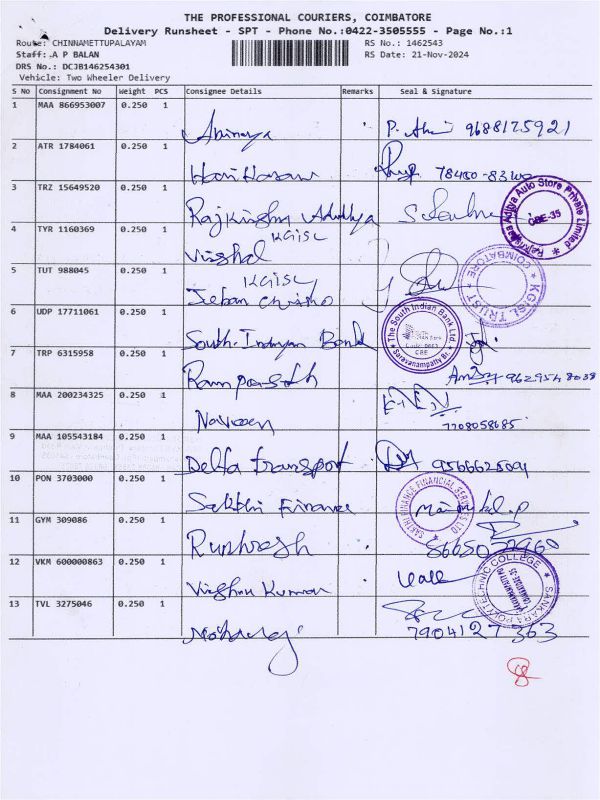 THE PROFESSIONAL COURIERS, COIMBATORE
Delivery Runsheet - SPT - Phone No.:0422-3505555 - Page No.:1
Route: CHINNAMETTUPALAYAM
RS No.: 1462543
Staff: A P BALAN
RS Date: 21-Nov-2024
DRS No.: DCJB146254301
Vehicle: Two Wheeler Delivery
S No Consignment No Weight PCS Consignee Details Remarks Seal & Signature
1 MAA 866953007 0.250 1
Abinaya 9688175921
2 ATR 1784061 0.250 1
Hari Haran
3 TRZ 15649520 0.250 1
Rajkrishna Adithya
Rajkrishna Aditya Auto Store Private Limited CBE-35
4 TYR 1160369 0.250 1
KGISL
Vishal
5 TUT 988045 0.250 1
KGISL
Jeban
KGISL TRUST COIMBATORE
6 UDP 17711061 0.250 1
South Indian Bank
The South Indian Bank Ltd. Saravanampatty Br. CBE
7 TRP 6315958 0.250 1
Ramprasath
8 MAA 200234325 0.250 1
Naveen 7708058685
9 MAA 105543184 0.250 1
Delta transport 9566625091
10 PON 3703000 0.250 1
Sakthi Finance
SAKTHI FINANCE FINANCIAL SERVICES LTD
11 GYM 309086 0.250 1
12 VKM 600000863 0.250 1
Vishnu Kumar
SANKARA POLYTECHNIC COLLEGE
13 TVL 3275046 0.250 1
7904127363